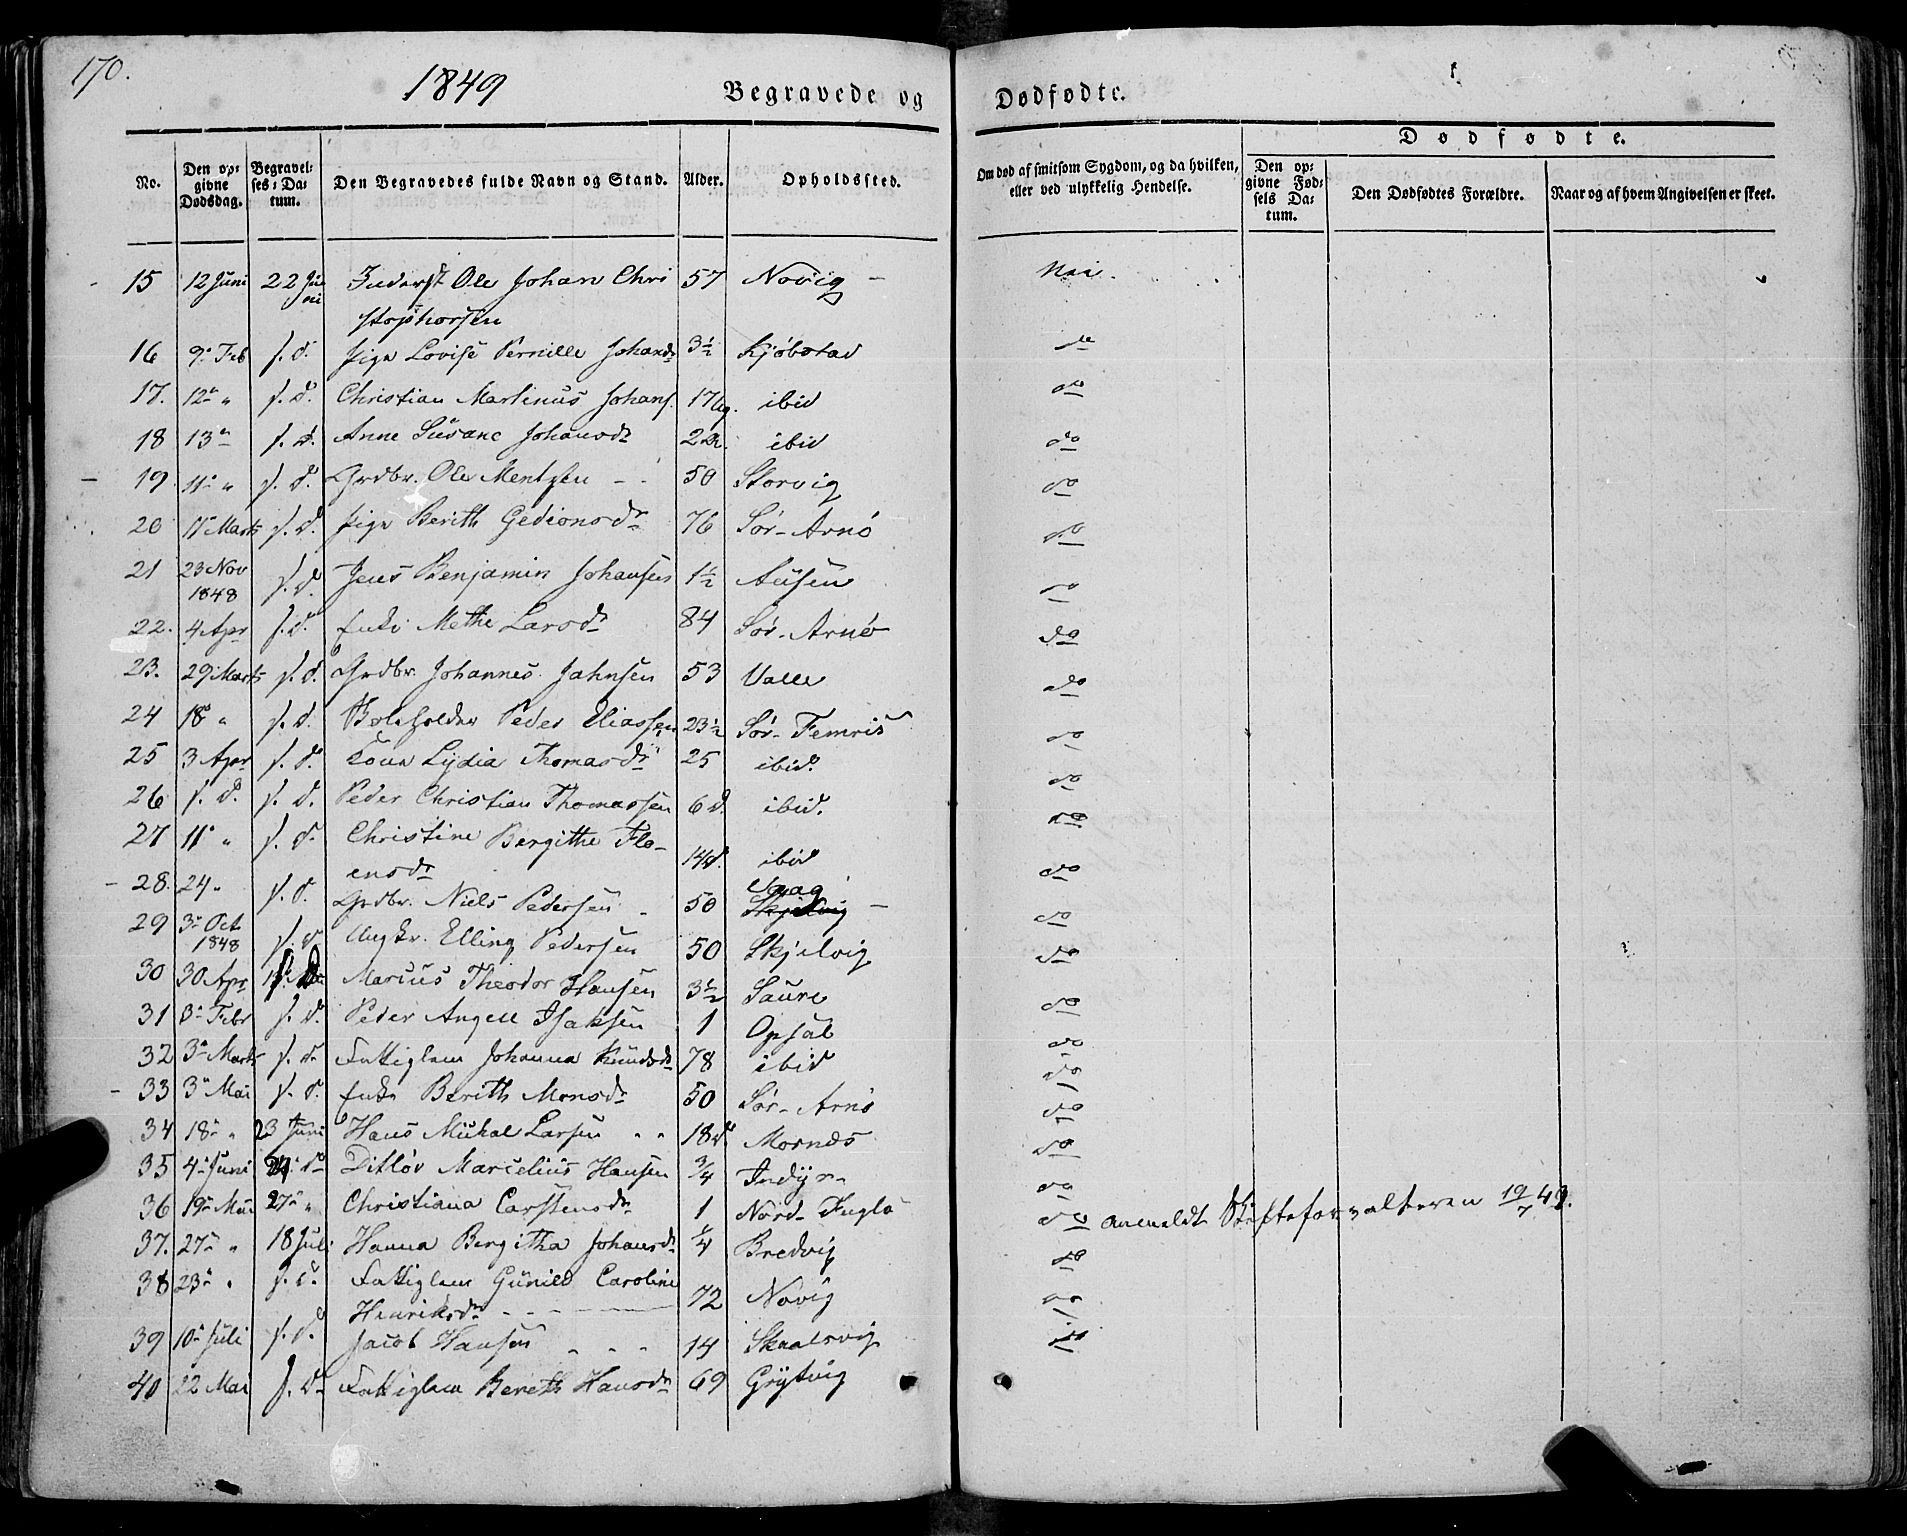 170.
1849
Begravede og
Dødfødte.
No.
Den op-
givne
Dødsdag.
Begravel-
ses-Da-
tum.
Den Begravedes fulde Navn og Stand.
Alder.
Opholdssted.
Om død af smitsom Sygdom, og da hvilken,
eller ved ulykkelig Hendelse.
Dødfødte.
Den op-
givne Fød-
sels Da-
tum.
Den Dødfødtes Forældre.
Naar og af hvem Angivelsen er skeet.
15 12 Juni 22 Ju
ni Inderst Ole Johan Chri 57 Novig Nei.
stophersen
16 9de Feb s. d. Pige Lovise Pernille Johansdr 3½ Kjøbstad do
17. 12te " s. d. Christian Martinus Johans. 17 ibid do
18 13de s. d. Anne Susane Johansdr ibid do
19 11te " s. d. Grdbr. Ole Mentzen 50 Storvig do
20 Marts s. d. Pige Berith Gedionsdr 76 Sør-Arnø do
21 23 Nov
1848 s. d. Jens Benjamin Johansen 1½ Ausen do
22. 4 Apr s. d. Enke Methe Larsdr 84 Sør-Arnø do
23. 29 Marts s. d. Grdbr. Johannes Jahnsen 53 Valle do
24 18de " s. d. Peder Eliassen 23½ Sør-Femris do
25 3 Apr s. d. Kone Lydia Thomasdr 25 ibid. do
26 s. d. s. d. Peder Christian Thomassen 6 d. ibid. do
27 11te " s. d. Christine Bergithe Flo-
ensdr 14 d. ibid do
28. 24 " s. d. Grdbr. Niels Pedersen 50 Skjelvig do
29 3de Oct
1848 s. d. Ungkr. Elling Pedersen 50 Skjelvig do
30 30 Apr s. d. Marcus Theodor Hansen 3½ Saure do
31 3de Febr s. d. Peder Angell Isaksen 1 Opsal do
32 3de Marts s. d. Fattiglem Johanna Knudsdr 78 ibid do
33 3de Mai s. d. Enke Berith Monsdr 50 Sør-Arnø do
34 18de " 23 Juni Hans Mikal Larsen " " 18 d. Mornæs do
35 4de Juni 24 do Ditløv Marcelius Hansen ¾ Indyr do
36 19de Mai 27de " Christiana Carstensdr 1 Nord-Fuglø do anmeldt Skifteforvalteren 19/7 49.
37. 27de " 18 Juli Hanna Bergitha Johansdr ¼ Bredvig do
38 23de " s. d. Fattiglem Gunild Caroline
Henriksdr 72 Novig do
39 10de Juli s. d. Jacob Hansen " " " 14 Skaalsvig do
40 22 Mai s. d. Fattiglem Bereth Hansdr 69 Grytvig